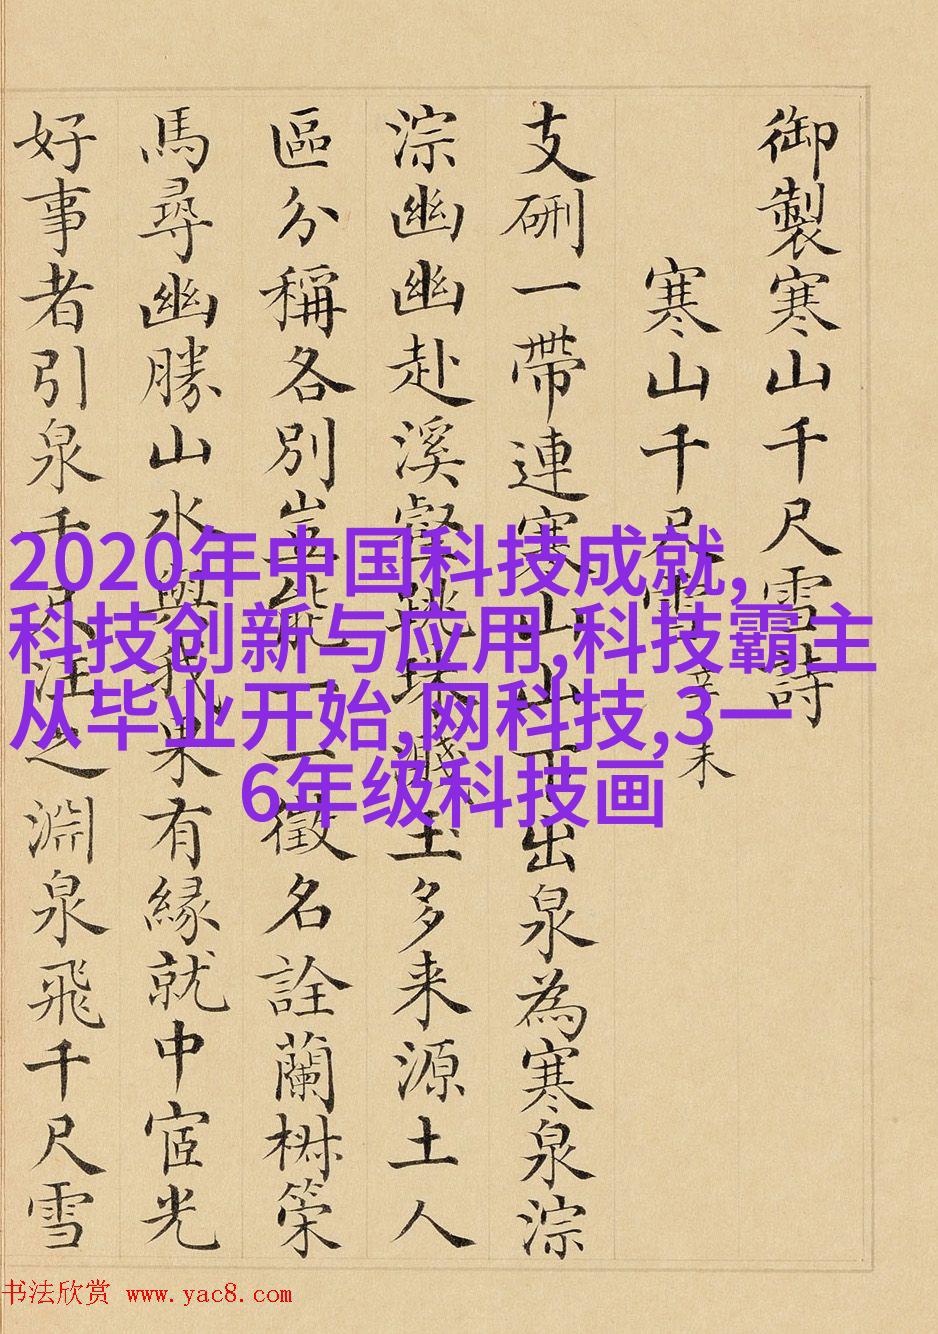 御製寒山千尺雪詩
寒山千尺雪辛未
支硎一帶連寒山山下出泉為寒泉淙
淙幽幽赴溪壑跳珠濺玉多来源土人
區分稱各別豈能一一徵名詮蘭椒策
馬尋幽勝山水與我果有緣就中宧光
好事者引泉千尺注之淵泉飛千尺雪
2020年中国科技成就,
科技创新与应用,科技霸主
从毕业开始,网科技,3一
6年级科技画
书法欣赏 www.yac8.com